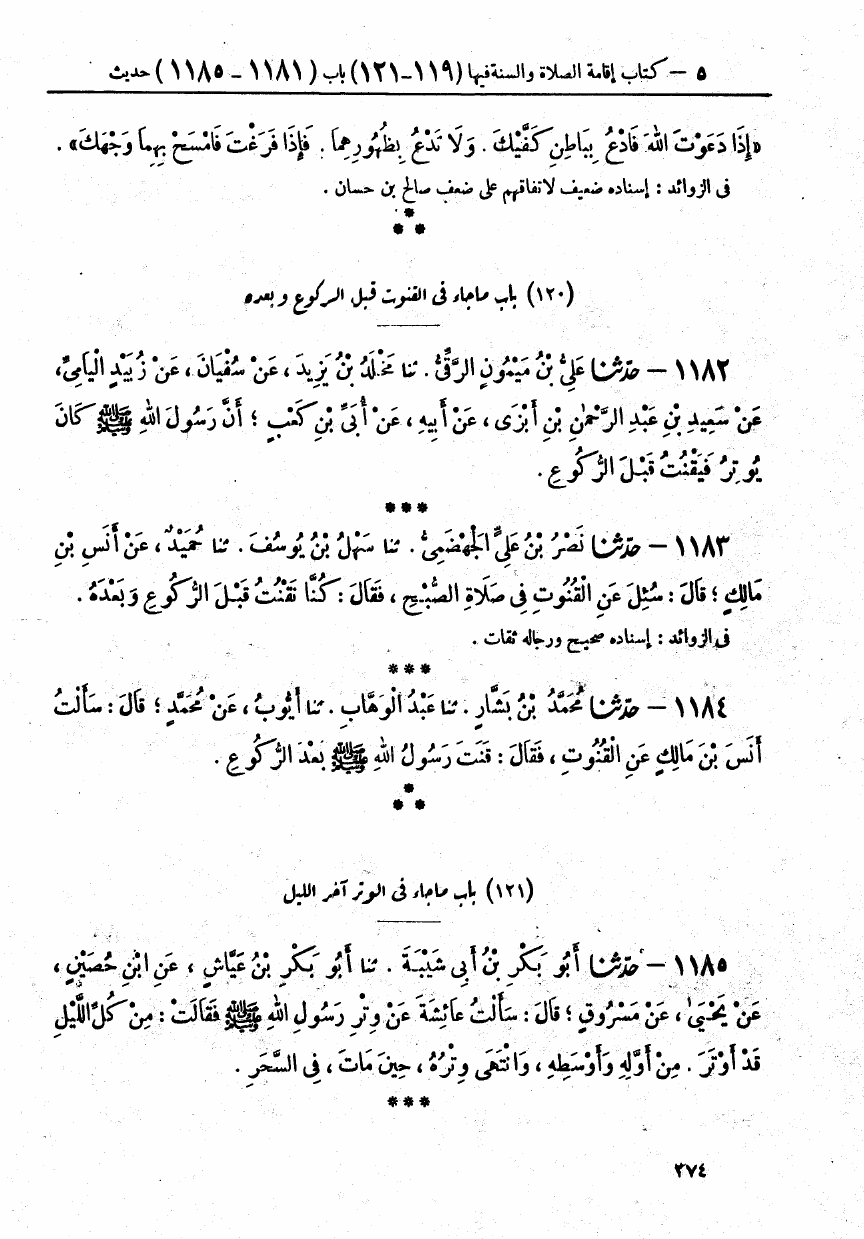 ٥ – كتاب إقامة الصلاة والسنة فيها (١١٩-١٢١) باب (١١٨١ - ١١٨٥) حديث
«إِذَا دَعَوْتَ اللهَ فَادْعُ بِبَاطِنِ كَفَّيْكَ . وَلَا تَدْعُ بِظُهُورِهِمَا . فَإِذَا فَرَغْتَ فَامْسَحْ بِهِمَا وَجْهَكَ» .
فى الزوائد : إسناده ضعيف لاتفاقهم على ضعف صالح بن حسان .
*
* *
(١٢٠) باب ماجاء فى القنوت قبل الركوع وبعده
١١٨٢ – حدّثنا عَلِيُّ بْنُ مَيْمُونٍ الرَّقِّيُّ . ثنا مَخْلَدُ بْنُ يَزِيدَ ، عَنْ سُفْيَانَ ، عَنْ زُبَيْدٍ الْيَامِيِّ ،
عَنْ سَعِيدِ بْنِ عَبْدِ الرَّحْمٰنِ بْنِ أَبْزَى ، عَنْ أَبِيهِ ، عَنْ أُبَيِّ بْنِ كَعْبٍ ؛ أَنَّ رَسُولَ اللهِ ﷺ كَانَ
يُوتِرُ فَيَقْنُتُ قَبْلَ الرُّكُوعِ .
* * *
١١٨٣ – حدّثنا نَصْرُ بْنُ عَلِيٍّ الْجَهْضَمِيُّ . ثنا سَهْلُ بْنُ يُوسُفَ . ثنا حُمَيْدٌ ، عَنْ أَنَسِ بْنِ
مَالِكٍ ؛ قَالَ : سُئِلَ عَنِ الْقُنُوتِ فِى صَلَاةِ الصُّبْحِ ، فَقَالَ : كُنَّا نَقْنُتُ قَبْلَ الرُّكُوعِ وَبَعْدَهُ .
فى الزوائد : إسناده صحيح ورجاله ثقات .
* * *
١١٨٤ – حدّثنا مُحَمَّدُ بْنُ بَشَّارٍ . ثنا عَبْدُ الْوَهَّابِ . ثنا أَيُّوبُ ، عَنْ مُحَمَّدٍ ؛ قَالَ : سَأَلْتُ
أَنَسَ بْنَ مَالِكٍ عَنِ الْقُنُوتِ ، فَقَالَ : قَنَتَ رَسُولُ اللهِ ﷺ بَعْدَ الرُّكُوعِ .
*
* *
(١٢١) باب ماجاء فى الوتر آخر الليل
١١٨٥ – حدّثنا أَبُو بَكْرِ بْنُ أَبِى شَيْبَةَ . ثنا أَبُو بَكْرِ بْنُ عَيَّاشٍ ، عَنِ ابْنِ حُصَيْنٍ ،
عَنْ يَحْيَىٰ ، عَنْ مَسْرُوقٍ ؛ قَالَ : سَأَلْتُ عَائِشَةَ عَنْ وِتْرِ رَسُولِ اللهِ ﷺ فَقَالَتْ : مِنْ كُلِّ اللَّيْلِ
قَدْ أَوْتَرَ . مِنْ أَوَّلِهِ وَأَوْسَطِهِ ، وَانْتَهَى وِتْرُهُ ، حِينَ مَاتَ ، فِى السَّحَرِ .
* * *
٣٧٤